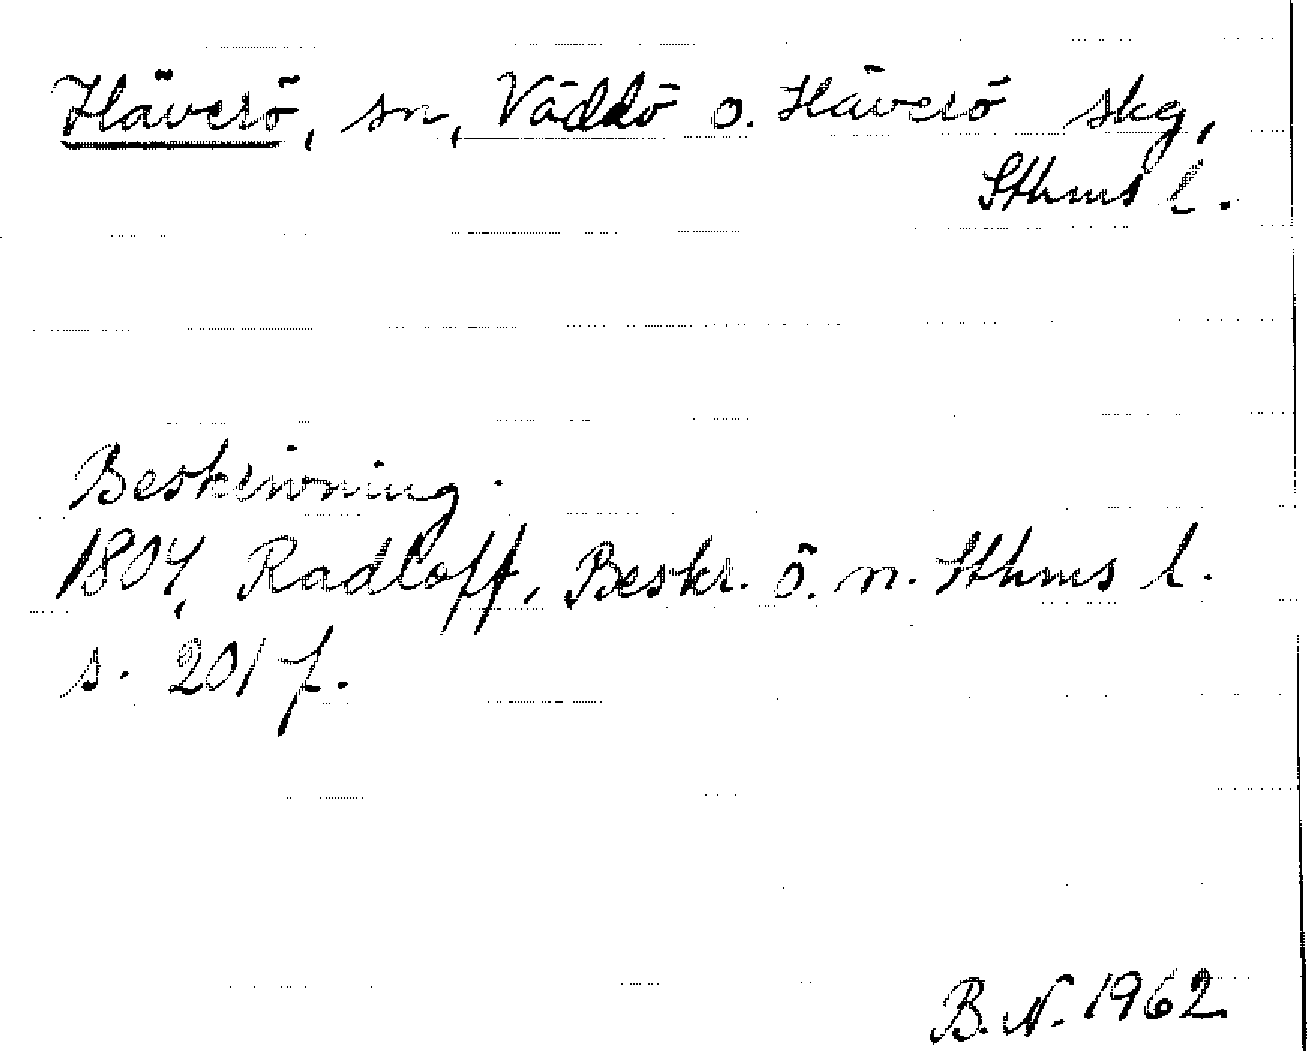 Häverö, sn, Väddö o. Häverö skg,
Sthms l.
Beskrivning.
1804, Radloff, Beskr. ö. n. Sthms l.
s. 201 f.
B. N. 1962